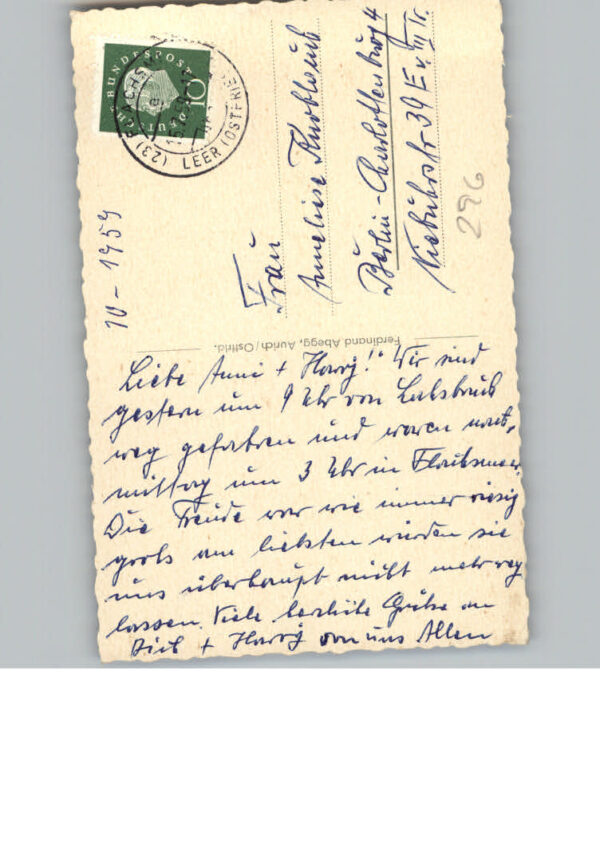 DEUTSCHE BUNDESPOST
10
(23) LEER (OSTFRIESL)
10-1959
Frau
Anneliese Knobloch
Berlin-Charlottenburg 4
Niebuhrstr 39 E v. III Tr.
296
Ferdinand Abegg, Aurich/Ostfrld.
Liebe Anni + Harry! Wir sind
gestern um 9 Uhr von
weg gefahren und waren nach-
mittag um 3 Uhr in
Die Freude war wie immer riesig
groß am liebsten würden sie
uns überhaupt nicht mehr weg
lassen. Viele herzliche Grüße an
Dich + Harry von uns Allen